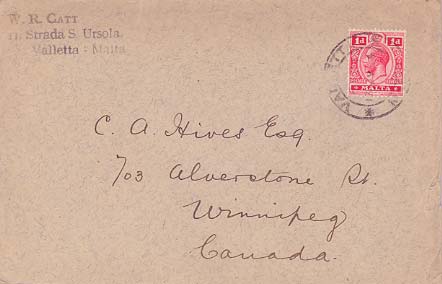 W. R. GATT
11 Strada S. Ursola,
Valletta : Malta
1d 1d
MALTA
C. A. Hives Esq.
703 Alverstone St.
Winnipeg
Canada.